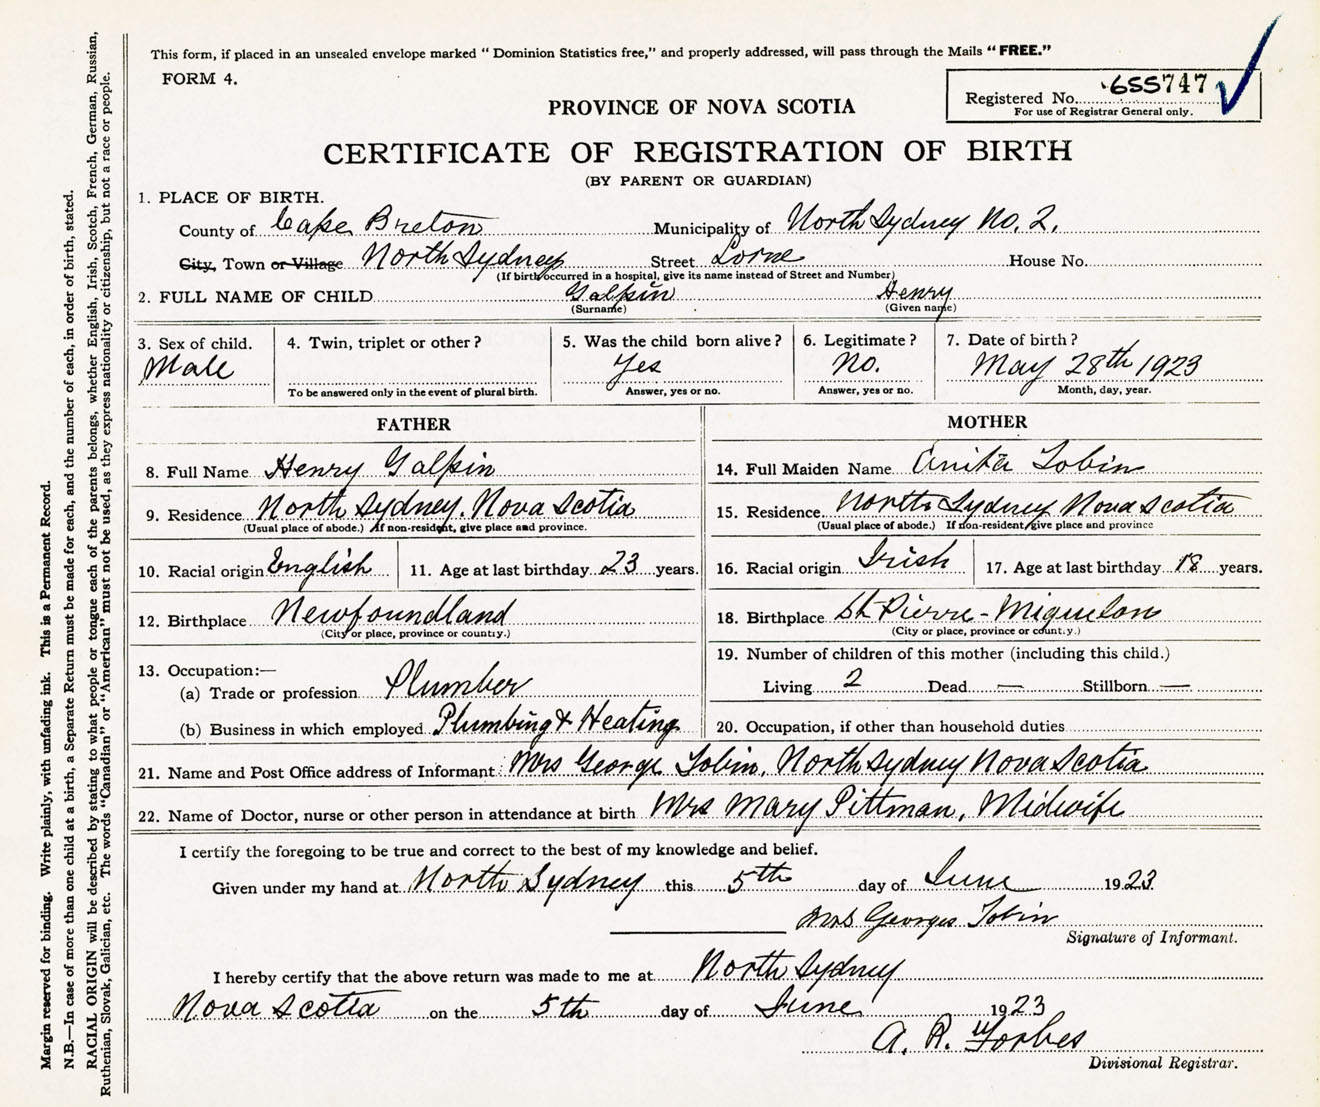 This form, if placed in an unsealed envelope marked "Dominion Statistics free," and properly addressed, will pass through the Mails "FREE."
FORM 4.
Registered No. 655747
For use of Registrar General only.
PROVINCE OF NOVA SCOTIA
CERTIFICATE OF REGISTRATION OF BIRTH
(BY PARENT OR GUARDIAN)
1. PLACE OF BIRTH.
County of Cape Breton Municipality of North Sydney No. 2.
City, Town or Village North Sydney Street Lorne House No.
(If birth occurred in a hospital, give its name instead of Street and Number)
2. FULL NAME OF CHILD Galpin Henry
(Surname) (Given name)
3. Sex of child. 4. Twin, triplet or other? 5. Was the child born alive? 6. Legitimate? 7. Date of birth?
Male Yes No. May 28th 1923
To be answered only in the event of plural birth. Answer, yes or no. Answer, yes or no. Month, day, year.
FATHER
8. Full Name Henry Galpin
9. Residence North Sydney, Nova Scotia
(Usual place of abode.) If non-resident, give place and province.
10. Racial origin English 11. Age at last birthday 23 years.
12. Birthplace Newfoundland
(City or place, province or country.)
13. Occupation:—
(a) Trade or profession Plumber
(b) Business in which employed Plumbing & Heating
MOTHER
14. Full Maiden Name Anita Tobin
15. Residence North Sydney Nova Scotia
(Usual place of abode.) If non-resident, give place and province
16. Racial origin Irish 17. Age at last birthday 18 years.
18. Birthplace St Pierre-Miquelon
(City or place, province or country.)
19. Number of children of this mother (including this child.)
Living 2 Dead — Stillborn —
20. Occupation, if other than household duties
21. Name and Post Office address of Informant: Mrs George Tobin, North Sydney Nova Scotia
22. Name of Doctor, nurse or other person in attendance at birth Mrs Mary Pittman, Midwife
I certify the foregoing to be true and correct to the best of my knowledge and belief.
Given under my hand at North Sydney this 5th day of June 1923
Mrs Georges Tobin
Signature of Informant.
I hereby certify that the above return was made to me at North Sydney
Nova Scotia on the 5th day of June 1923
A. R. Forbes
Divisional Registrar.
Margin reserved for binding. Write plainly, with unfading ink. This is a Permanent Record.
N.B.—In case of more than one child at a birth, a Separate Return must be made for each, and the number of each, in order of birth, stated.
RACIAL ORIGIN will be described by stating to what people or tongue each of the parents belongs, whether English, Irish, Scotch, French, German, Russian,
Ruthenian, Slovak, Galician, etc. The words "Canadian" or "American" must not be used, as they express nationality or citizenship, but not a race or people.